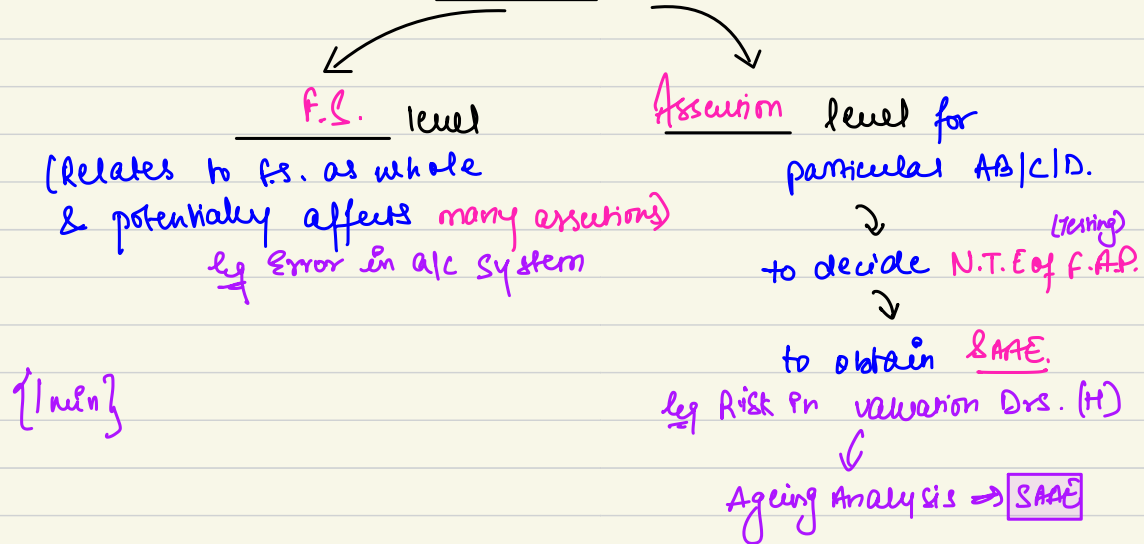 F.S. level
(Relates to f.s. as whole
& potentially affects many assertions)
eg Error in a/c system
{1 min}
Assertion level for
particular AB/C/D.
to decide N.T.E of F.A.P. (Testing)
to obtain SAAE.
eg Risk in valuation Drs. (H)
Ageing Analysis ⇒ SAAE